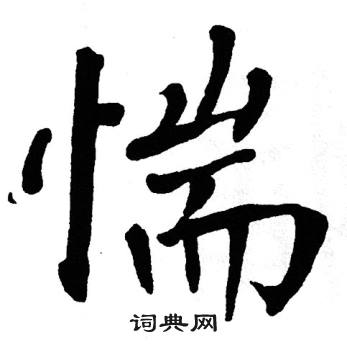 惴
词典网